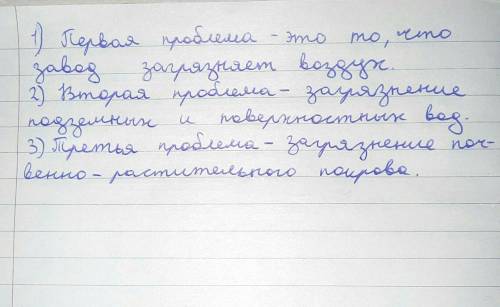 1) Первая проблема - это то, что
завод загрязняет воздух.
2) Вторая проблема - загрязнение
подземных и поверхностных вод.
3) Третья проблема - загрязнение поч-
венно - растительного покрова.